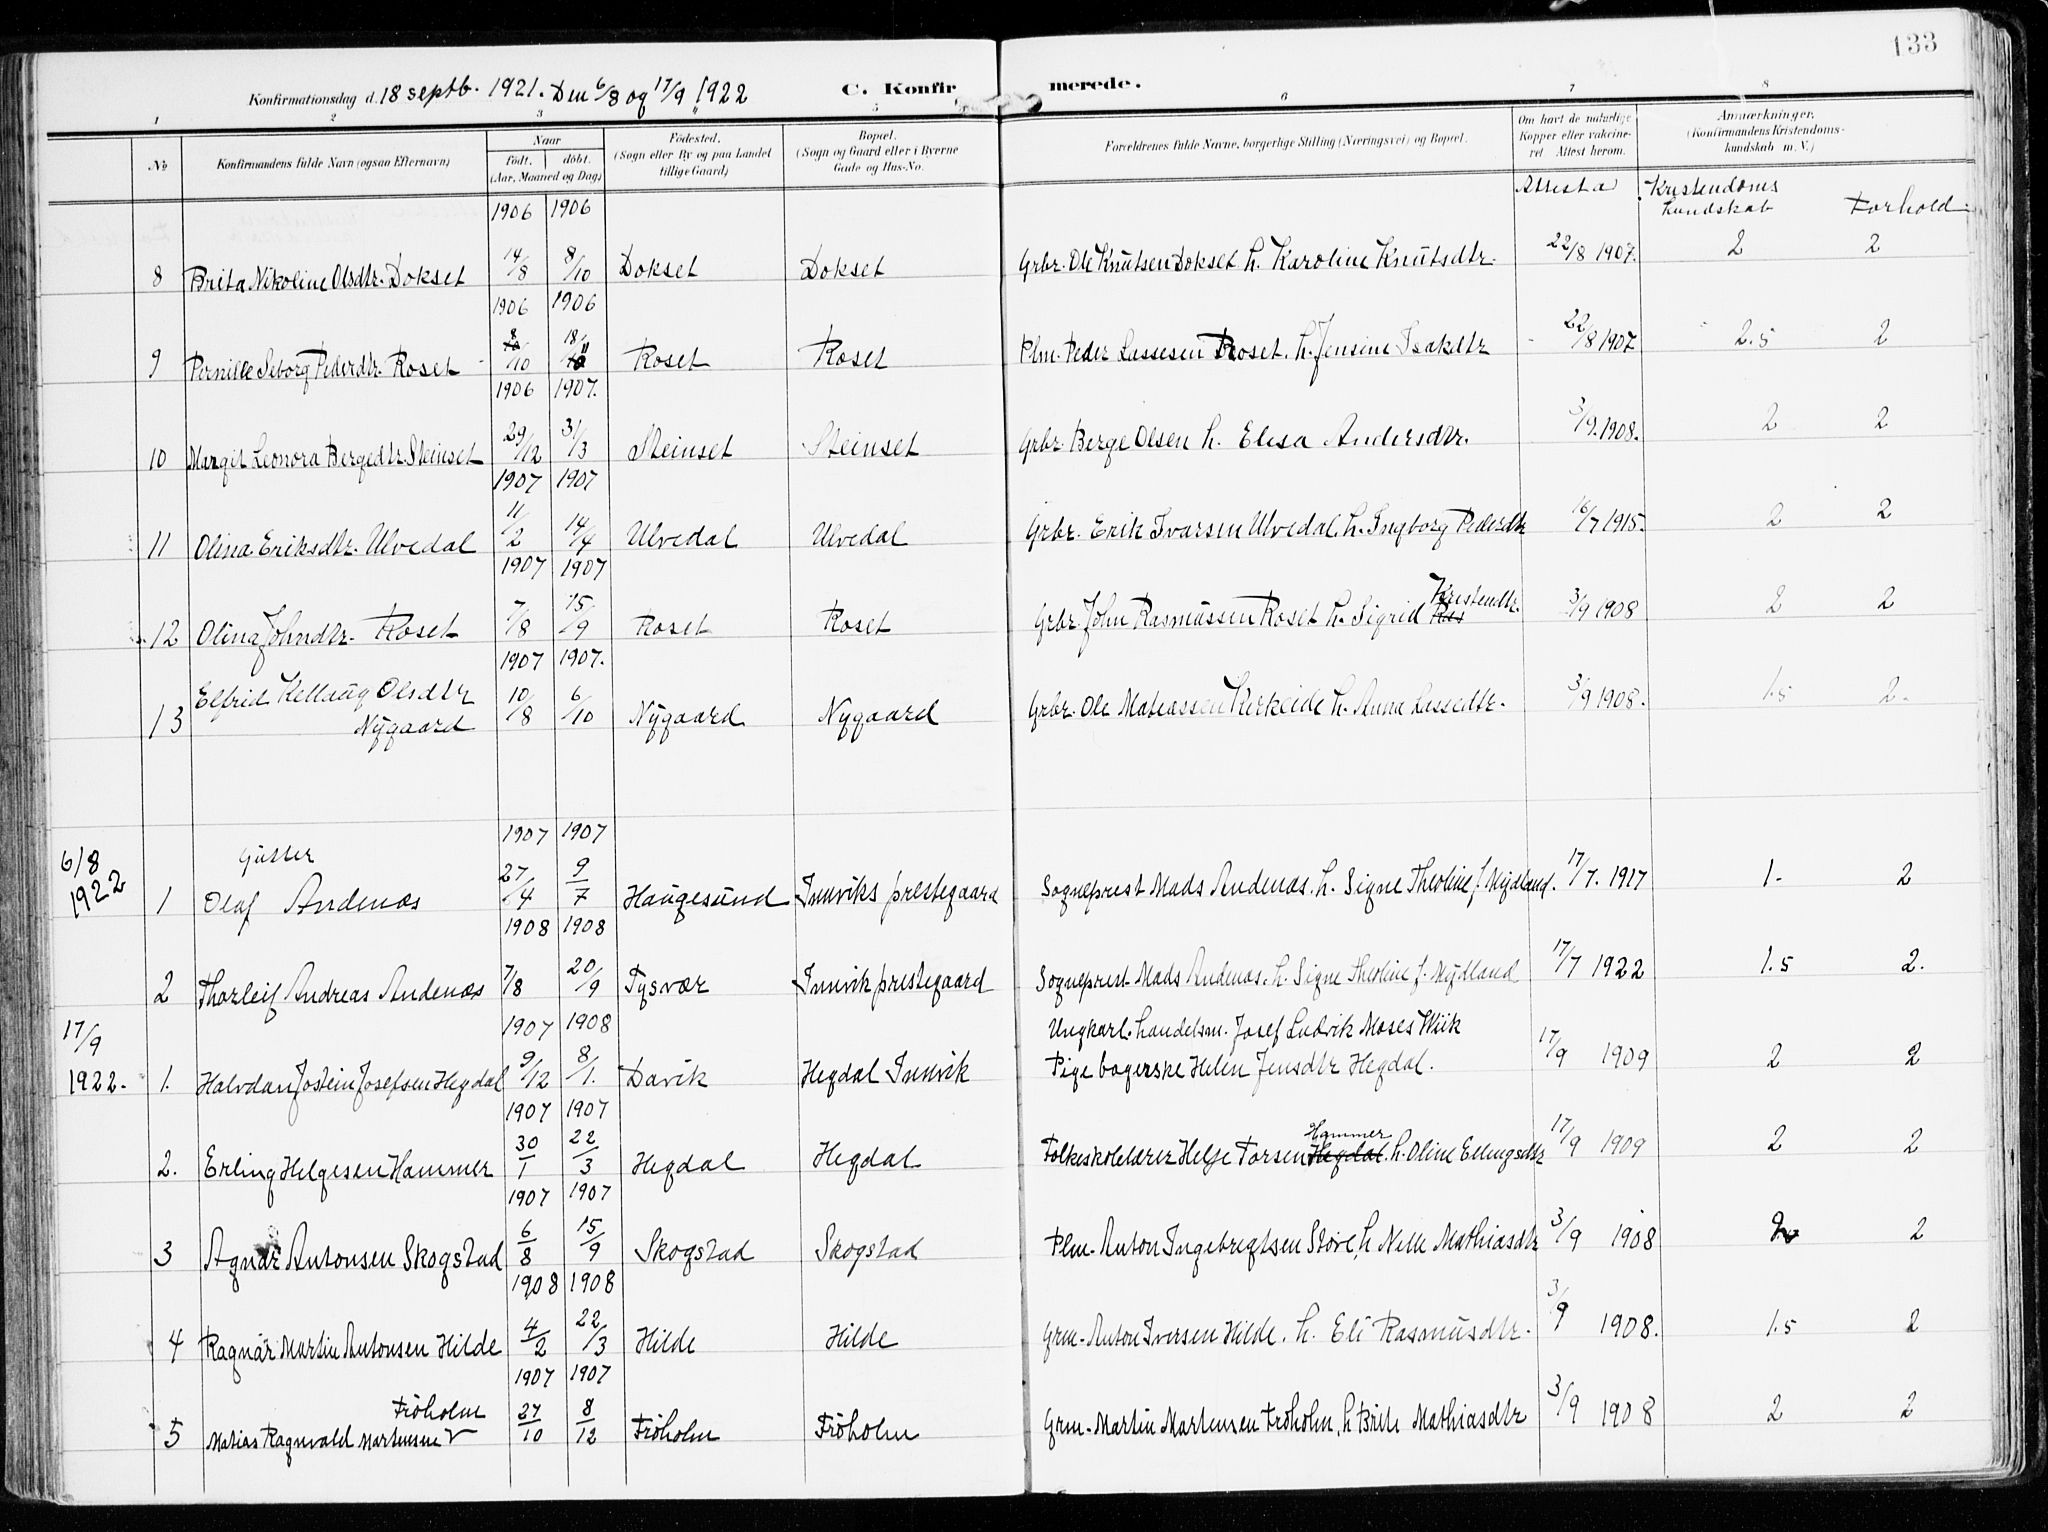 133
Konfirmationsdag d. 18 septb. 1921. Den 6/8 og 17/9 1922 C. Konfirmerede.
1 2 3 5 6 7 8
No. Konfirmandens fulde Navn (ogsaa Efternavn) Naar født. døbt. (Aar, Maaned og Dag) Fødested. (Sogn eller By og paa Landet tillige Gaard) Bopæl. (Sogn og Gaard eller i Byerne Gade og Hus-No. Forældrenes fulde Navne, borgerlige Stilling (Næringsvei) og Bopæl. Om havt de naturlige Kopper eller vakcineret. Attest herom. Anmærkninger. (Konfirmandens Kristendomskundskab m. V.)
Attesta Kristendoms kundskab Forhold
1906 1906
8 Brita Nikoline Olsdtr. Dokset 14/8 8/10 Dokset Dokset Grbr. Ole Knutsen Dokset h. Karoline Knutsdtr. 22/8 1907. 2 2
1906 1906
9 Pernille Seborg Pederdtr. Roset 8/10 18/11 Roset Roset Plm. Peder Lassesen Roset. h. Jensine Isakdtr 22/8 1907. 2.5 2
1906 1907.
10 Margit Leonora Bergedtr. Steinset 29/12 3/3 Steinset Steinset Grbr. Berge Olsen h. Elesa Andersdtr. 3/9. 1908. 2 2
1907 1907
11 Olina Eriksdtr. Ulvedal 11/2 14/4 Ulvedal Ulvedal Grbr. Erik Ivarsen Ulvedal. h. Ingborg Pederdtr 16/7 1915. 2 2
1907 1907
12 Olina Johndtr. Roset 7/8 15/9 Roset Roset Grbr. John Rasmussen Roset h. Sigrid Ras Kristendtr. 3/9 1908 2 2
1907 1907.
13 Elfrid Kellaug Olsdtr Nygaard 10/8 6/10 Nygaard Nygaard Grbr. Ole Matiassen Kirkeide h. Anna Lassedtr. 3/9 1908. 1.5 2.
1907 1907
Gutter
6/8 1922 1 Olaf Andenæs 27/4 9/7 Haugesund Innviks prestegaard Sogneprest Mads Andenæs. h. Signe Theoline f. Mydland. 17/7. 1917 1- 2
1908 1908
2 Thorleif Andreas Andenæs 7/8 20/9 Tysvær Innvik prestegaard Sogneprest Mads Andenæs. h. Signe Theoline f. Mydland 17/7 1922 1.5 2.
1907 1908
17/9 1922. 1. Halvdan Jostein Josefsen Hegdal 9/12 8/1. Davik Hegdal Innvik Ungkarl. handelsm. Josef Ludvik Moses Wiik
Pige bagerske Helen Jensdtr Hegdal. 17/9 1909 2 2
1907 1907
2. Erling Helgesen Hammer 30/1 22/3 Hegdal Hegdal Folkeskolelærer Helge Torsen Hegdal Hammer. h. Oline Ellingsdtr 17/9 1909 2 2
1907 1907
3 Agnar Antonsen Skogstad 6/8 15/9 Skogstad Skogstad Plm. Anton Ingebregtsen Støre, h Nelle Mathiasdtr 3/9 1908 2 2
1908 1908
4 Ragnar Martin Antonsen Hilde 4/2 22/3 Hilde Hilde Grm. Anton Iversen Hilde. h. Eli Rasmusdtr. 3/9 1908. 1.5 2
1907 1907
5 Matias Ragnvald Martensen Frøholm 27/10 8/12 Frøholm Frøholm Grm. Martin Martensen Frøholm, h Brite Mathiasdtr 3/9 1908 2 2